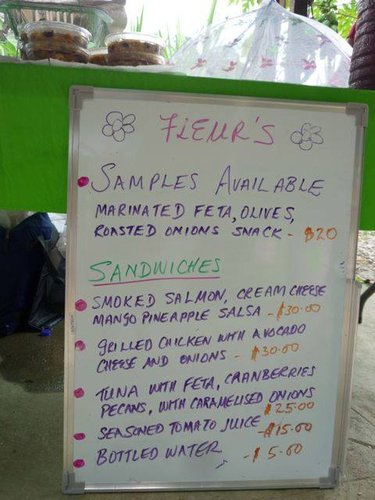 FLEUR'S
SAMPLES AVAILABLE
MARINATED FETA, OLIVES,
ROASTED ONIONS SNACK - $20
SANDWICHES
SMOKED SALMON, CREAM CHEESE
MANGO PINEAPPLE SALSA - $30.00
GRILLED CHICKEN WITH AVOCADO
CHEESE AND ONIONS - $30.00
TUNA WITH FETA, CRANBERRIES
PECANS, WITH CARAMELISED ONIONS
$25.00
SEASONED TOMATO JUICE - $15.00
BOTTLED WATER - $5.00